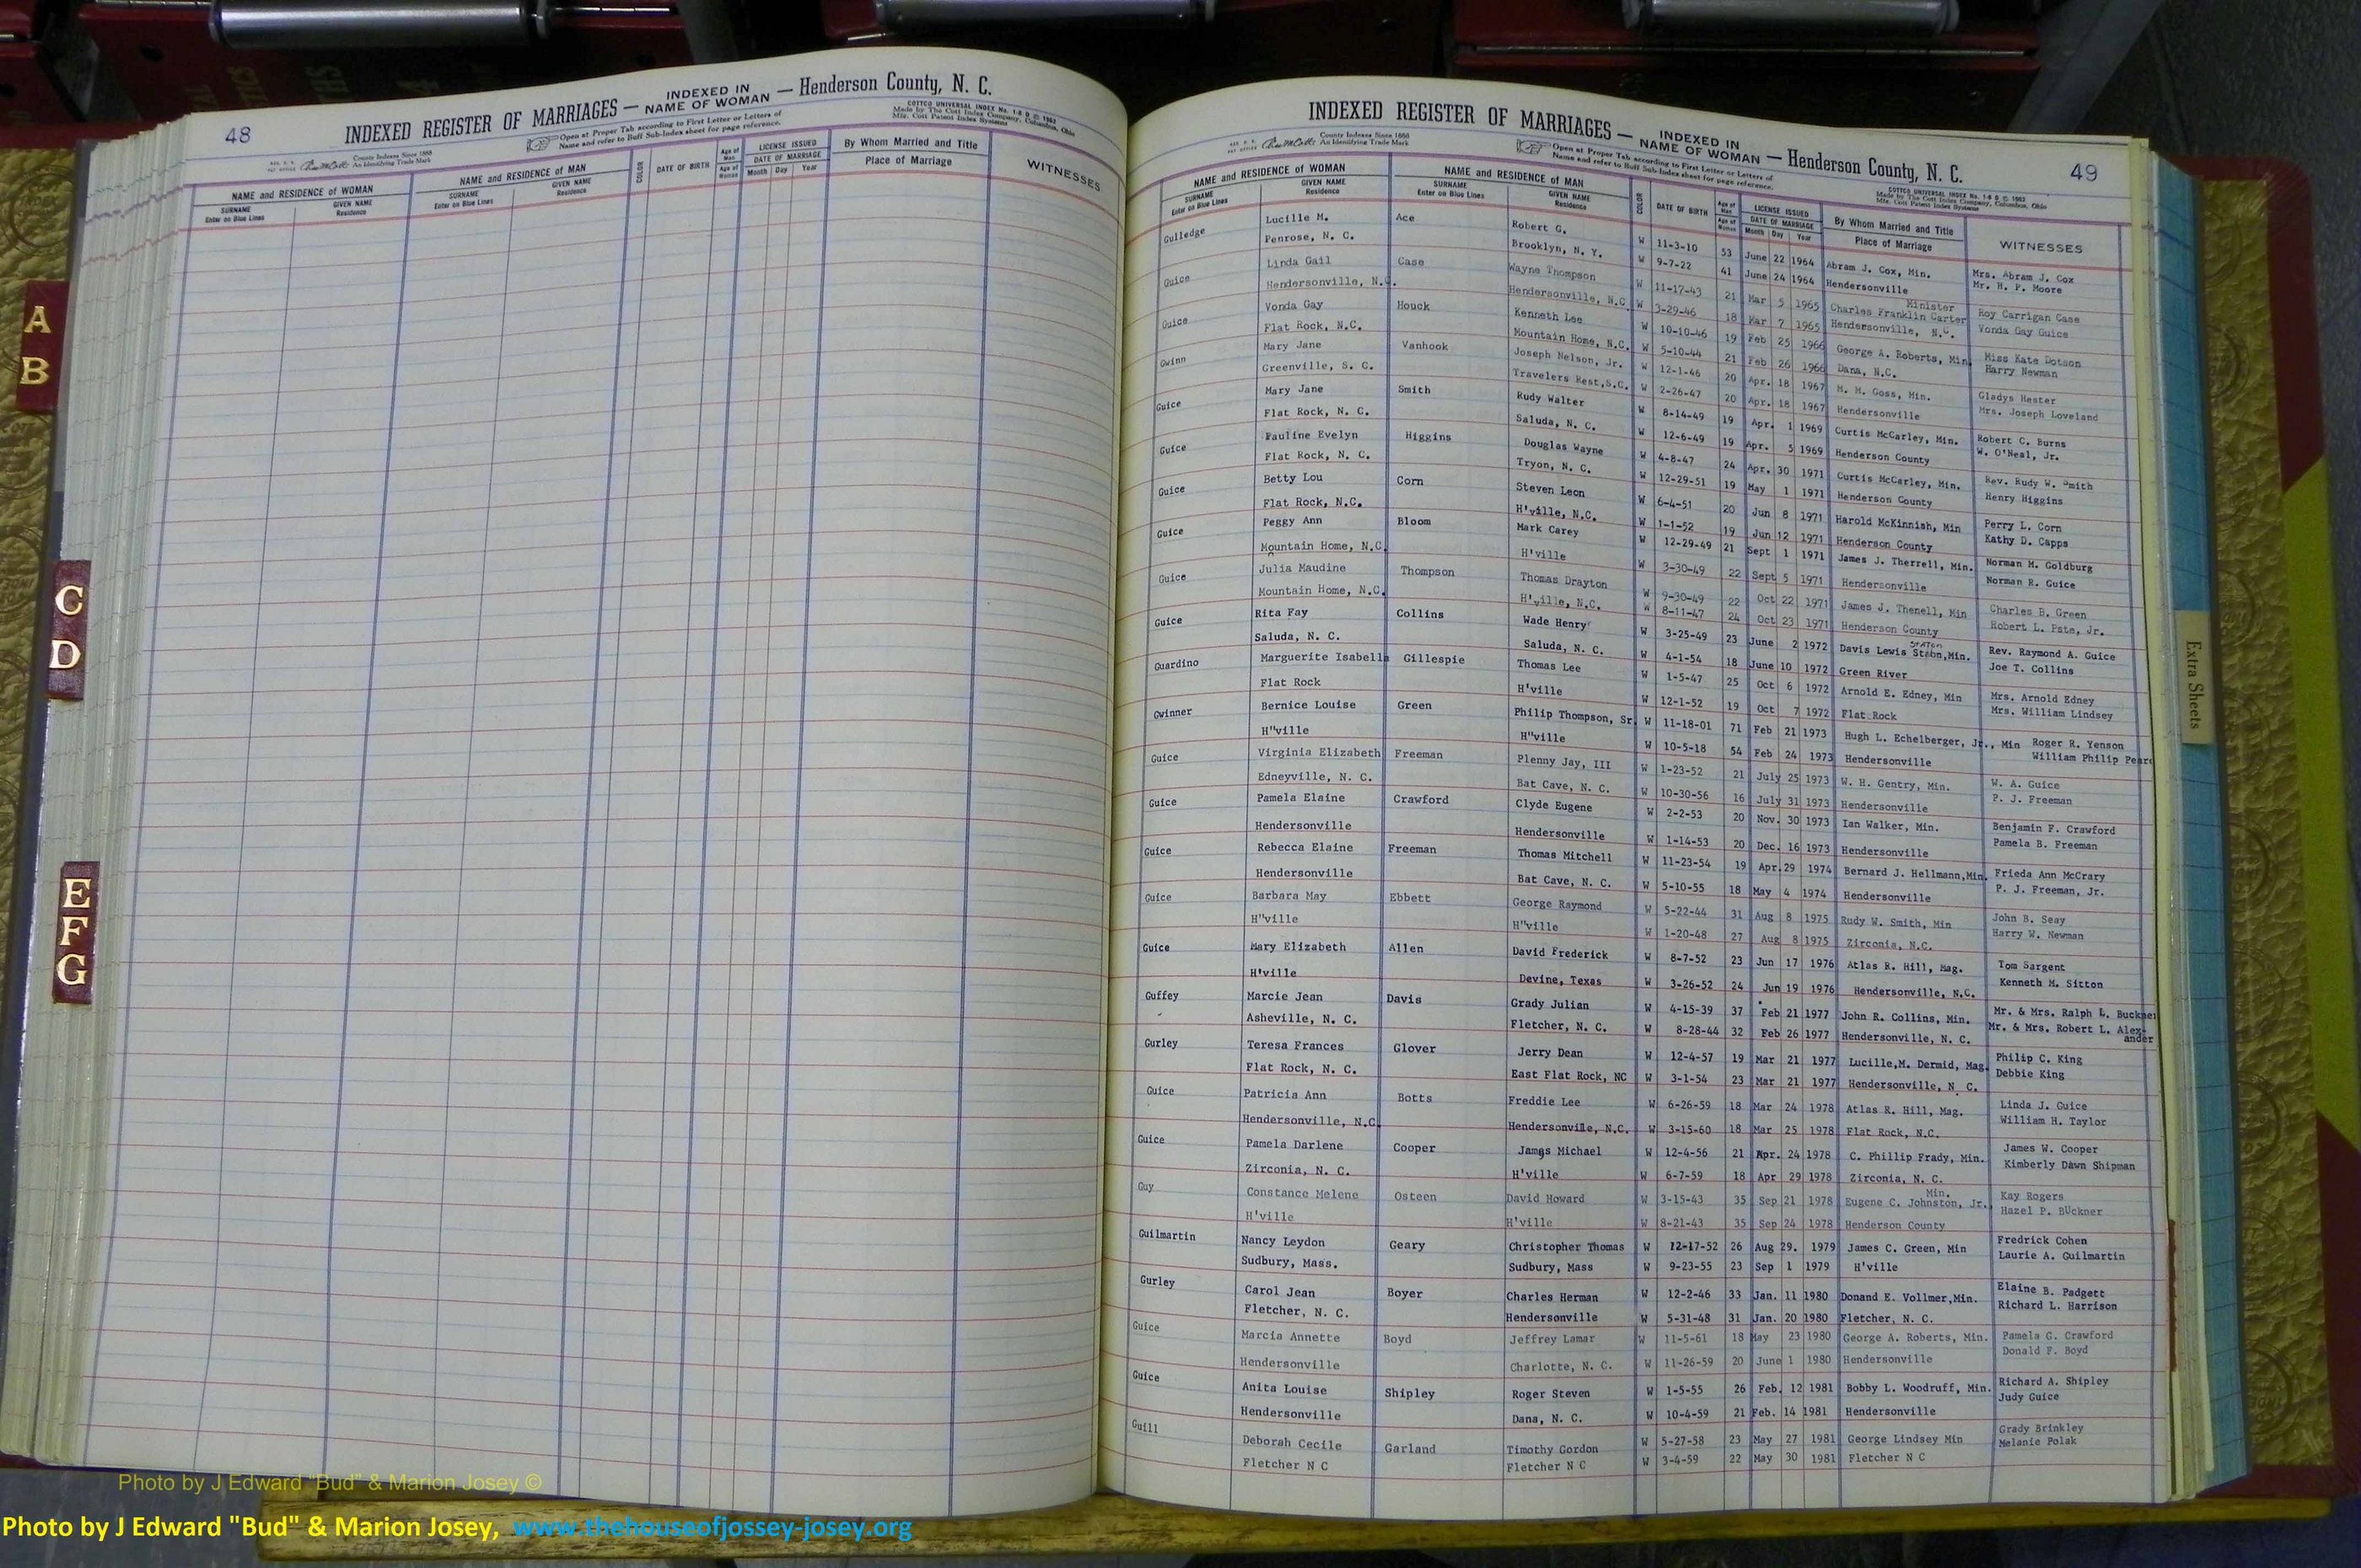 48
INDEXED REGISTER OF MARRIAGES — INDEXED IN NAME OF WOMAN — Henderson County, N. C.
County Indexes Since 1888
An Identifying Trade Mark
Open at Proper Tab according to First Letter or Letters of
Name and refer to Buff Sub-Index sheet for page reference.
COTTCO UNIVERSAL INDEX
Made by The Cott Index Company, Columbus, Ohio
Mfr. Cott Patent Index Systems
NAME and RESIDENCE of WOMAN
SURNAME
Enter on Blue Lines
GIVEN NAME
Residence
NAME and RESIDENCE of MAN
SURNAME
Enter on Blue Lines
GIVEN NAME
Residence
COLOR
DATE OF BIRTH
Age of Man
Age of Woman
LICENSE ISSUED
DATE OF MARRIAGE
Month Day Year
By Whom Married and Title
Place of Marriage
WITNESSES
49
INDEXED REGISTER OF MARRIAGES — INDEXED IN NAME OF WOMAN — Henderson County, N. C.
County Indexes Since 1888
An Identifying Trade Mark
Open at Proper Tab according to First Letter or Letters of
Name and refer to Buff Sub-Index sheet for page reference.
COTTCO UNIVERSAL INDEX
Made by The Cott Index Company, Columbus, Ohio
Mfr. Cott Patent Index Systems
NAME and RESIDENCE of WOMAN
SURNAME
Enter on Blue Lines
GIVEN NAME
Residence
NAME and RESIDENCE of MAN
SURNAME
Enter on Blue Lines
GIVEN NAME
Residence
COLOR
DATE OF BIRTH
LICENSE ISSUED
DATE OF MARRIAGE
Month Day Year
By Whom Married and Title
Place of Marriage
WITNESSES
Gulledge Lucille M. Ace Robert G. W 11-3-10 53 June 22 1964 Abram J. Cox, Min. Mrs. Abram J. Cox
Penrose, N. C. Brooklyn, N. Y. W 9-7-22 41 June 24 1964 Hendersonville Mr. H. P. Moore
Guice Linda Gail Case Wayne Thompson W 11-17-43 21 Mar 5 1965 Charles Franklin Carter Minister Roy Carrigan Case
Hendersonville, N.C. Hendersonville, N.C. W 3-29-46 18 Mar 7 1965 Hendersonville, N.C. Vonda Gay Guice
Guice Vonda Gay Houck Kenneth Lee W 10-10-46 19 Feb 25 1966 George A. Roberts, Min. Miss Kate Dotson
Flat Rock, N.C. Mountain Home, N.C. W 5-10-44 21 Feb 26 1966 Dana, N.C. Harry Newman
Gwinn Mary Jane Vanhook Joseph Nelson, Jr. W 12-1-46 20 Apr. 18 1967 M. M. Goss, Min. Gladys Hester
Greenville, S. C. Travelers Rest,S.C. W 2-26-47 20 Apr. 18 1967 Hendersonville Mrs. Joseph Loveland
Guice Mary Jane Smith Rudy Walter W 8-14-49 19 Apr. 1 1969 Curtis McCarley, Min. Robert C. Burns
Flat Rock, N. C. Saluda, N. C. W 12-6-49 19 Apr. 5 1969 Henderson County W. O'Neal, Jr.
Guice Pauline Evelyn Higgins Douglas Wayne W 4-8-47 24 Apr. 30 1971 Curtis McCarley, Min. Rev. Rudy W. Smith
Flat Rock, N. C. Tryon, N. C. W 12-29-51 19 May 1 1971 Henderson County Henry Higgins
Guice Betty Lou Corn Steven Leon W 6-4-51 20 Jun 8 1971 Harold McKinnish, Min Perry L. Corn
Flat Rock, N.C. H'ville, N.C. W 1-1-52 19 Jun 12 1971 Henderson County Kathy D. Capps
Guice Peggy Ann Bloom Mark Carey W 12-29-49 21 Sept 1 1971 James J. Therrell, Min. Norman M. Goldburg
Mountain Home, N.C. H'ville W 3-30-49 22 Sept 5 1971 Hendersonville Norman R. Guice
Guice Julia Maudine Thompson Thomas Drayton W 9-30-49 22 Oct 22 1971 James J. Thenell, Min Charles B. Green
Mountain Home, N.C. H'ville, N.C. W 8-11-47 24 Oct 23 1971 Henderson County Robert L. Pate, Jr.
Guice Rita Fay Collins Wade Henry W 3-25-49 23 June 2 1972 Davis Lewis Staton,Min. Rev. Raymond A. Guice
Saluda, N. C. Saluda, N. C. W 4-1-54 18 June 10 1972 Green River Joe T. Collins
Guardino Marguerite Isabella Gillespie Thomas Lee W 1-5-47 25 Oct 6 1972 Arnold E. Edney, Min Mrs. Arnold Edney
Flat Rock H'ville W 12-1-52 19 Oct 7 1972 Flat Rock Mrs. William Lindsey
Gwinner Bernice Louise Green Philip Thompson, Sr. W 11-18-01 71 Feb 21 1973 Hugh L. Echelberger, Jr., Min Roger R. Yenson
H"ville H"ville W 10-5-18 54 Feb 24 1973 Hendersonville William Philip
Guice Virginia Elizabeth Freeman Plenny Jay, III W 1-23-52 21 July 25 1973 W. H. Gentry, Min. W. A. Guice
Edneyville, N. C. Bat Cave, N. C. W 10-30-56 16 July 31 1973 Hendersonville P. J. Freeman
Guice Pamela Elaine Crawford Clyde Eugene W 2-2-53 20 Nov. 30 1973 Ian Walker, Min. Benjamin F. Crawford
Hendersonville Hendersonville W 1-14-53 20 Dec. 16 1973 Hendersonville Pamela B. Freeman
Guice Rebecca Elaine Freeman Thomas Mitchell W 11-23-54 19 Apr.29 1974 Bernard J. Hellmann,Min. Frieda Ann McCrary
Hendersonville Bat Cave, N. C. W 5-10-55 18 May 4 1974 Hendersonville P. J. Freeman, Jr.
Guice Barbara May Ebbett George Raymond W 5-22-44 31 Aug 8 1975 Rudy W. Smith, Min John B. Seay
H"ville H"ville W 1-20-48 27 Aug 8 1975 Zirconia, N.C. Harry W. Newman
Guice Mary Elizabeth Allen David Frederick W 8-7-52 23 Jun 17 1976 Atlas R. Hill, Mag. Tom Sargent
H'ville Devine, Texas W 3-26-52 24 Jun 19 1976 Hendersonville, N.C. Kenneth M. Sitton
Guffey Marcie Jean Davis Grady Julian W 4-15-39 37 Feb 21 1977 John R. Collins, Min. Mr. & Mrs. Ralph L. Buckner
Asheville, N. C. Fletcher, N. C. W 8-28-44 32 Feb 26 1977 Hendersonville, N. C. Mr. & Mrs. Robert L. Alex-
ander
Gurley Teresa Frances Glover Jerry Dean W 12-4-57 19 Mar 21 1977 Lucille,M. Dermid, Mag. Philip C. King
Flat Rock, N. C. East Flat Rock, NC W 3-1-54 23 Mar 21 1977 Hendersonville, N. C. Debbie King
Guice Patricia Ann Botts Freddie Lee W 6-26-59 18 Mar 24 1978 Atlas R. Hill, Mag. Linda J. Guice
Hendersonville, N.C. Hendersonville, N.C. W 3-15-60 18 Mar 25 1978 Flat Rock, N.C. William H. Taylor
Guice Pamela Darlene Cooper James Michael W 12-4-56 21 Apr. 24 1978 C. Phillip Frady, Min. James W. Cooper
Zirconia, N. C. H'ville W 6-7-59 18 Apr 29 1978 Zirconia, N. C. Kimberly Dawn Shipman
Guy Constance Melene Osteen David Howard W 3-15-43 35 Sep 21 1978 Eugene C. Johnston, Jr., Min. Kay Rogers
H'ville H'ville W 8-21-43 35 Sep 24 1978 Henderson County Hazel P. BUckner
Guilmartin Nancy Leydon Geary Christopher Thomas W 12-17-52 26 Aug 29. 1979 James C. Green, Min Fredrick Cohen
Sudbury, Mass. Sudbury, Mass W 9-23-55 23 Sep 1 1979 H'ville Laurie A. Guilmartin
Gurley Carol Jean Boyer Charles Herman W 12-2-46 33 Jan. 11 1980 Donand E. Vollmer,Min. Elaine B. Padgett
Fletcher, N. C. Hendersonville W 5-31-48 31 Jan. 20 1980 Fletcher, N. C. Richard L. Harrison
Guice Marcia Annette Boyd Jeffrey Lamar W 11-5-61 18 May 23 1980 George A. Roberts, Min. Pamela G. Crawford
Hendersonville Charlotte, N. C. W 11-26-59 20 June 1 1980 Hendersonville Donald F. Boyd
Guice Anita Louise Shipley Roger Steven W 1-5-55 26 Feb. 12 1981 Bobby L. Woodruff, Min. Richard A. Shipley
Hendersonville Dana, N. C. W 10-4-59 21 Feb. 14 1981 Hendersonville Judy Guice
Guill Deborah Cecile Garland Timothy Gordon W 5-27-58 23 May 27 1981 George Lindsey Min Grady Brinkley
Fletcher N C Fletcher N C W 3-4-59 22 May 30 1981 Fletcher N C Melanie Polak
A
B
C
D
E
F
G
Extra Sheets
Photo by J Edward "Bud" & Marion Josey ©
Photo by J Edward "Bud" & Marion Josey, www.thehouseofjossey-josey.org